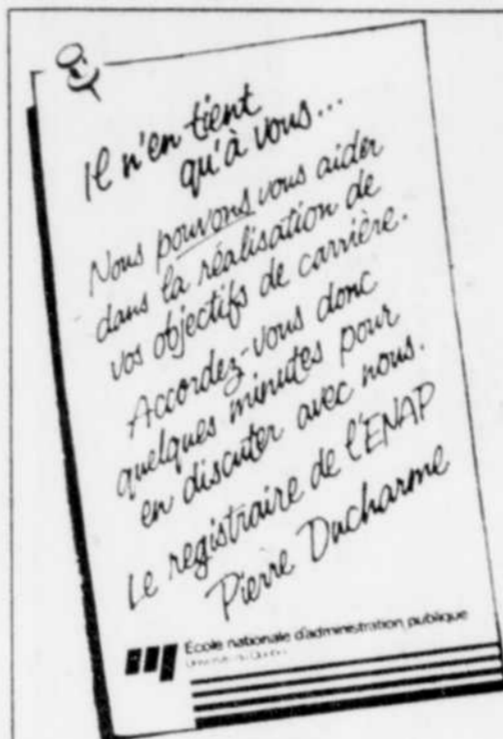 Il n'en tient
qu'à vous...
Nous pouvons vous aider
dans la réalisation de
vos objectifs de carrière.
Accordez-vous donc
quelques minutes pour
en discuter avec nous.
Le registraire de l'ENAP
Pierre Ducharme
École nationale d'administration publique
Université du Québec